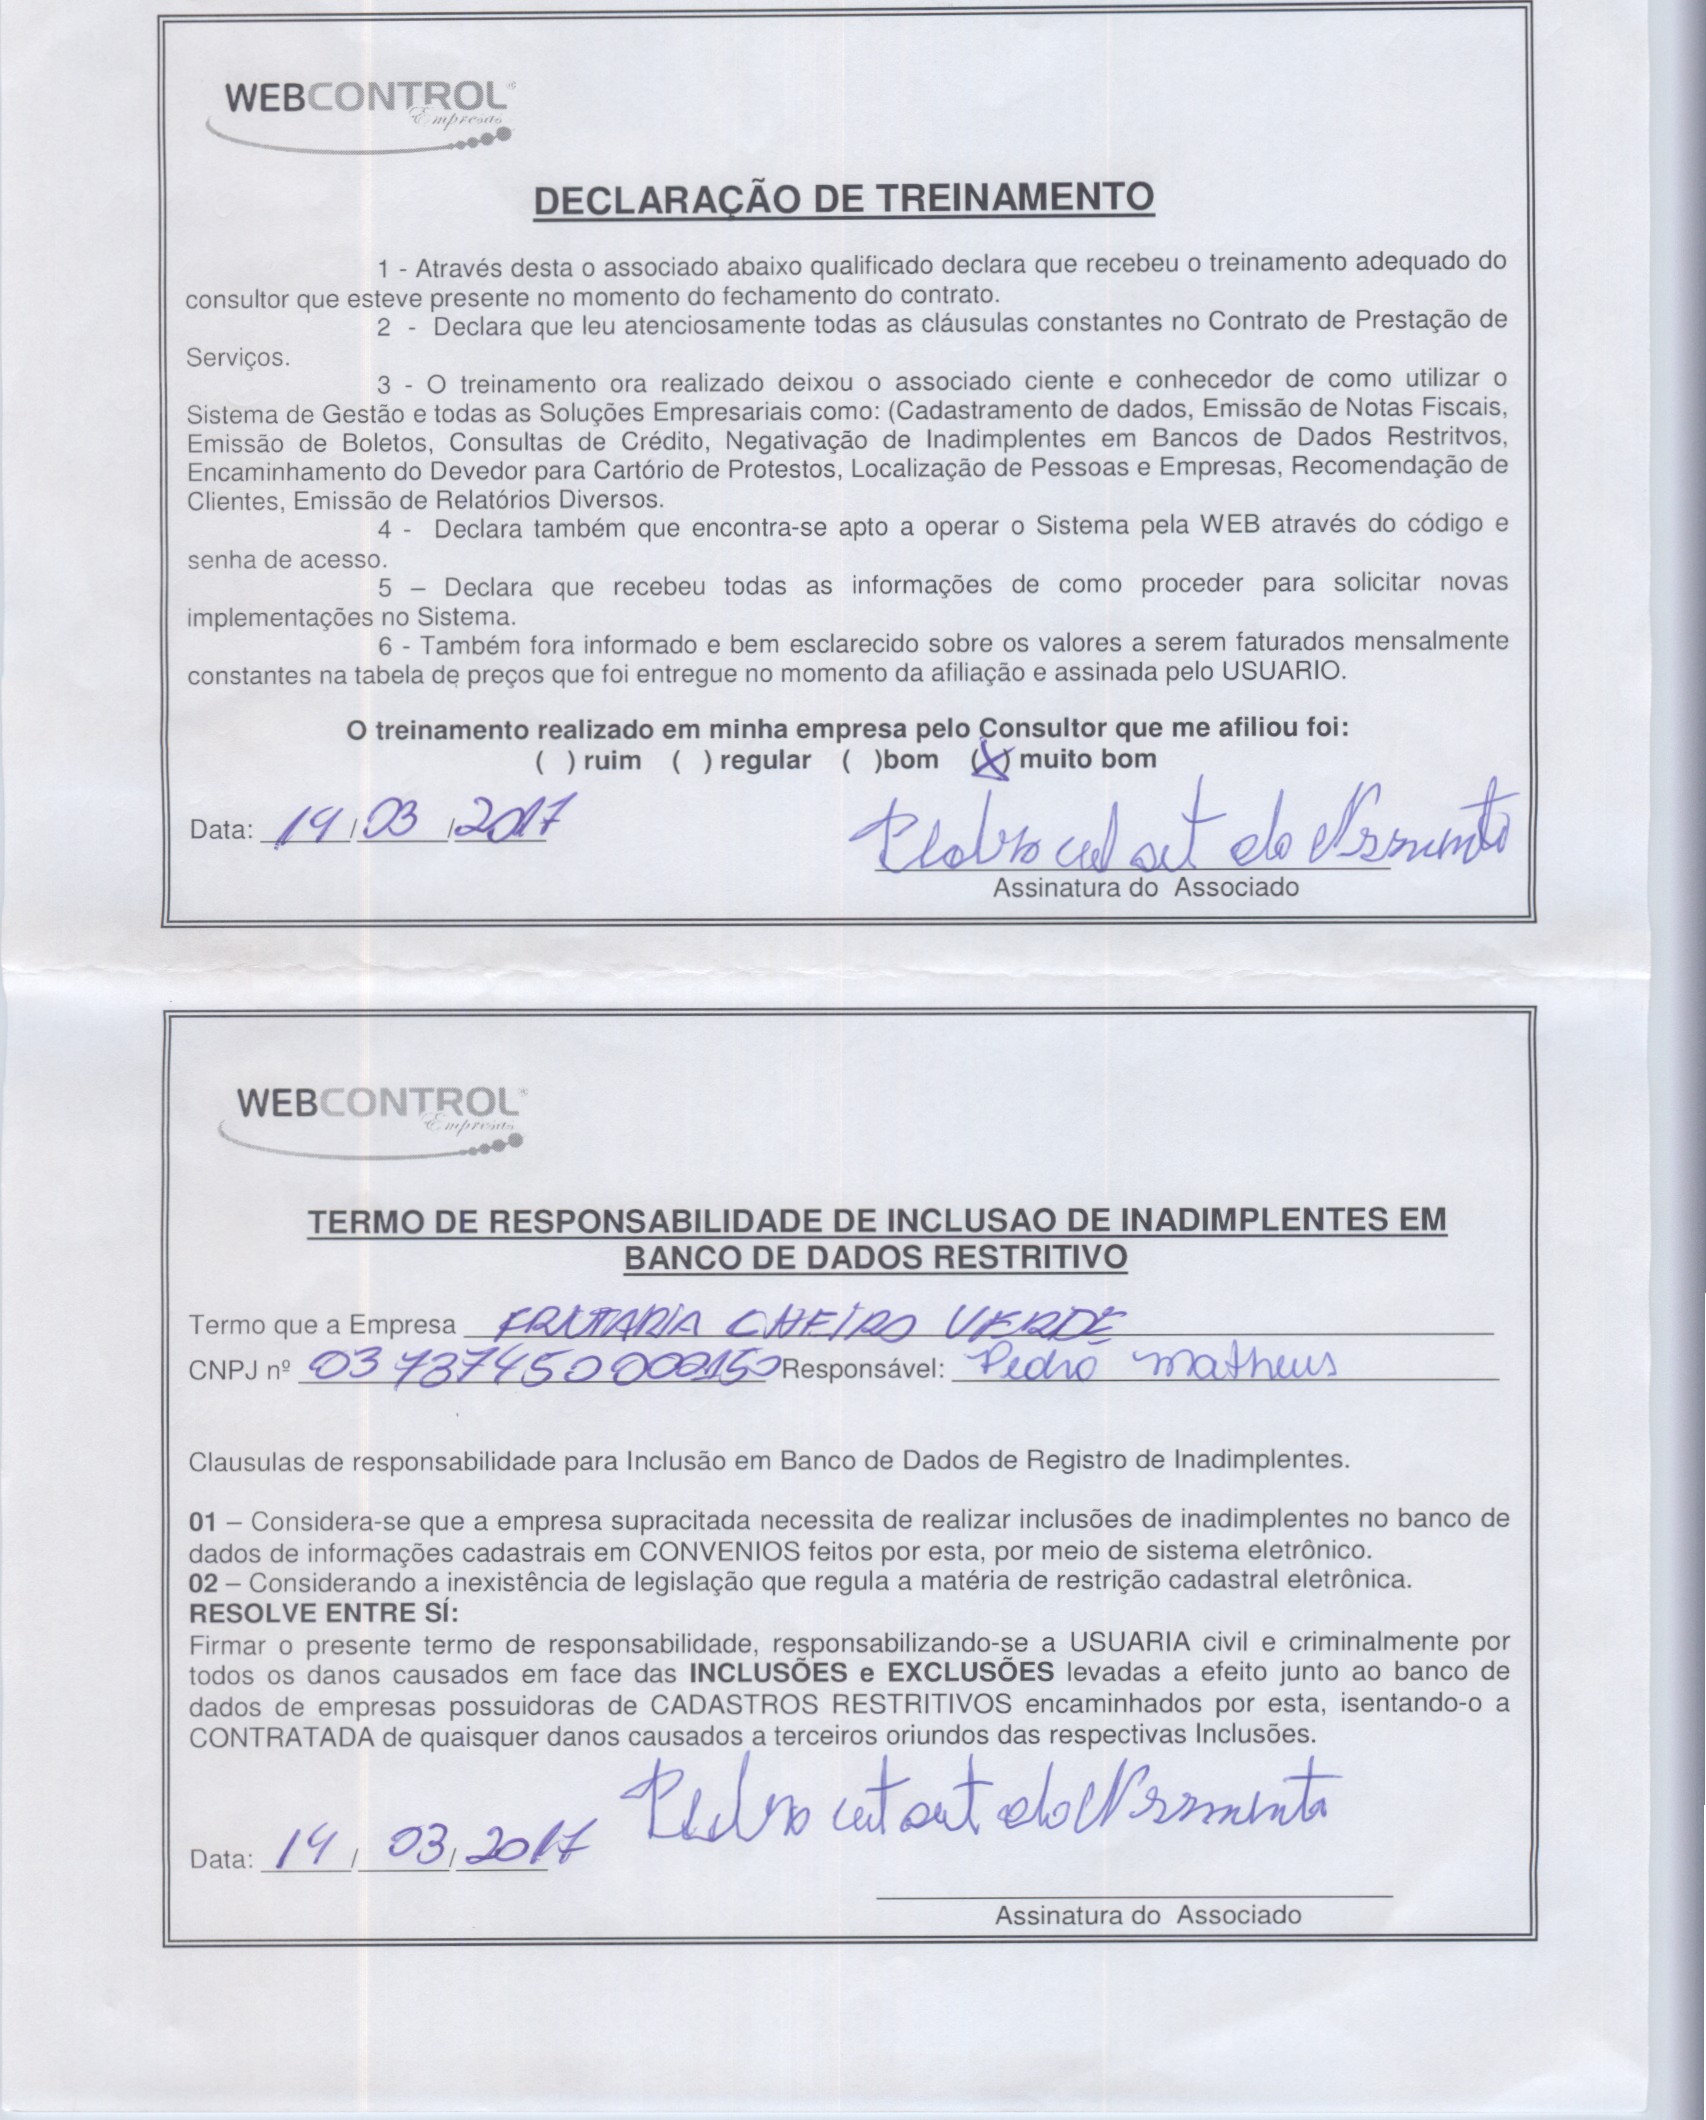 WEBCONTROL®
Empresas
DECLARAÇÃO DE TREINAMENTO
1 - Através desta o associado abaixo qualificado declara que recebeu o treinamento adequado do
consultor que esteve presente no momento do fechamento do contrato.
2 - Declara que leu atenciosamente todas as cláusulas constantes no Contrato de Prestação de
Serviços.
3 - O treinamento ora realizado deixou o associado ciente e conhecedor de como utilizar o
Sistema de Gestão e todas as Soluções Empresariais como: (Cadastramento de dados, Emissão de Notas Fiscais,
Emissão de Boletos, Consultas de Crédito, Negativação de Inadimplentes em Bancos de Dados Restritvos,
Encaminhamento do Devedor para Cartório de Protestos, Localização de Pessoas e Empresas, Recomendação de
Clientes, Emissão de Relatórios Diversos.
4 - Declara também que encontra-se apto a operar o Sistema pela WEB através do código e
senha de acesso.
5 – Declara que recebeu todas as informações de como proceder para solicitar novas
implementações no Sistema.
6 - Também fora informado e bem esclarecido sobre os valores a serem faturados mensalmente
constantes na tabela de preços que foi entregue no momento da afiliação e assinada pelo USUARIO.
O treinamento realizado em minha empresa pelo Consultor que me afiliou foi:
( ) ruim ( ) regular ( )bom (X) muito bom
Data: 14/03/2017
Assinatura do Associado
WEBCONTROL®
Empresas
TERMO DE RESPONSABILIDADE DE INCLUSAO DE INADIMPLENTES EM
BANCO DE DADOS RESTRITIVO
Termo que a Empresa FRUTARIA CHEIRO VERDE
CNPJ nº 03737450000150 Responsável: Pedro Matheus
Clausulas de responsabilidade para Inclusão em Banco de Dados de Registro de Inadimplentes.
01 – Considera-se que a empresa supracitada necessita de realizar inclusões de inadimplentes no banco de
dados de informações cadastrais em CONVENIOS feitos por esta, por meio de sistema eletrônico.
02 – Considerando a inexistência de legislação que regula a matéria de restrição cadastral eletrônica.
RESOLVE ENTRE SÍ:
Firmar o presente termo de responsabilidade, responsabilizando-se a USUARIA civil e criminalmente por
todos os danos causados em face das INCLUSÕES e EXCLUSÕES levadas a efeito junto ao banco de
dados de empresas possuidoras de CADASTROS RESTRITIVOS encaminhados por esta, isentando-o a
CONTRATADA de quaisquer danos causados a terceiros oriundos das respectivas Inclusões.
Data: 14/03/2017
Assinatura do Associado